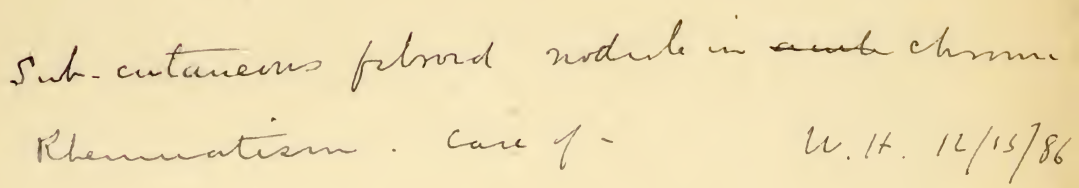 Sub-cutaneous fibroid nodule in acute chronic
Rheumatism. Case of -   W. H. 12/15/86